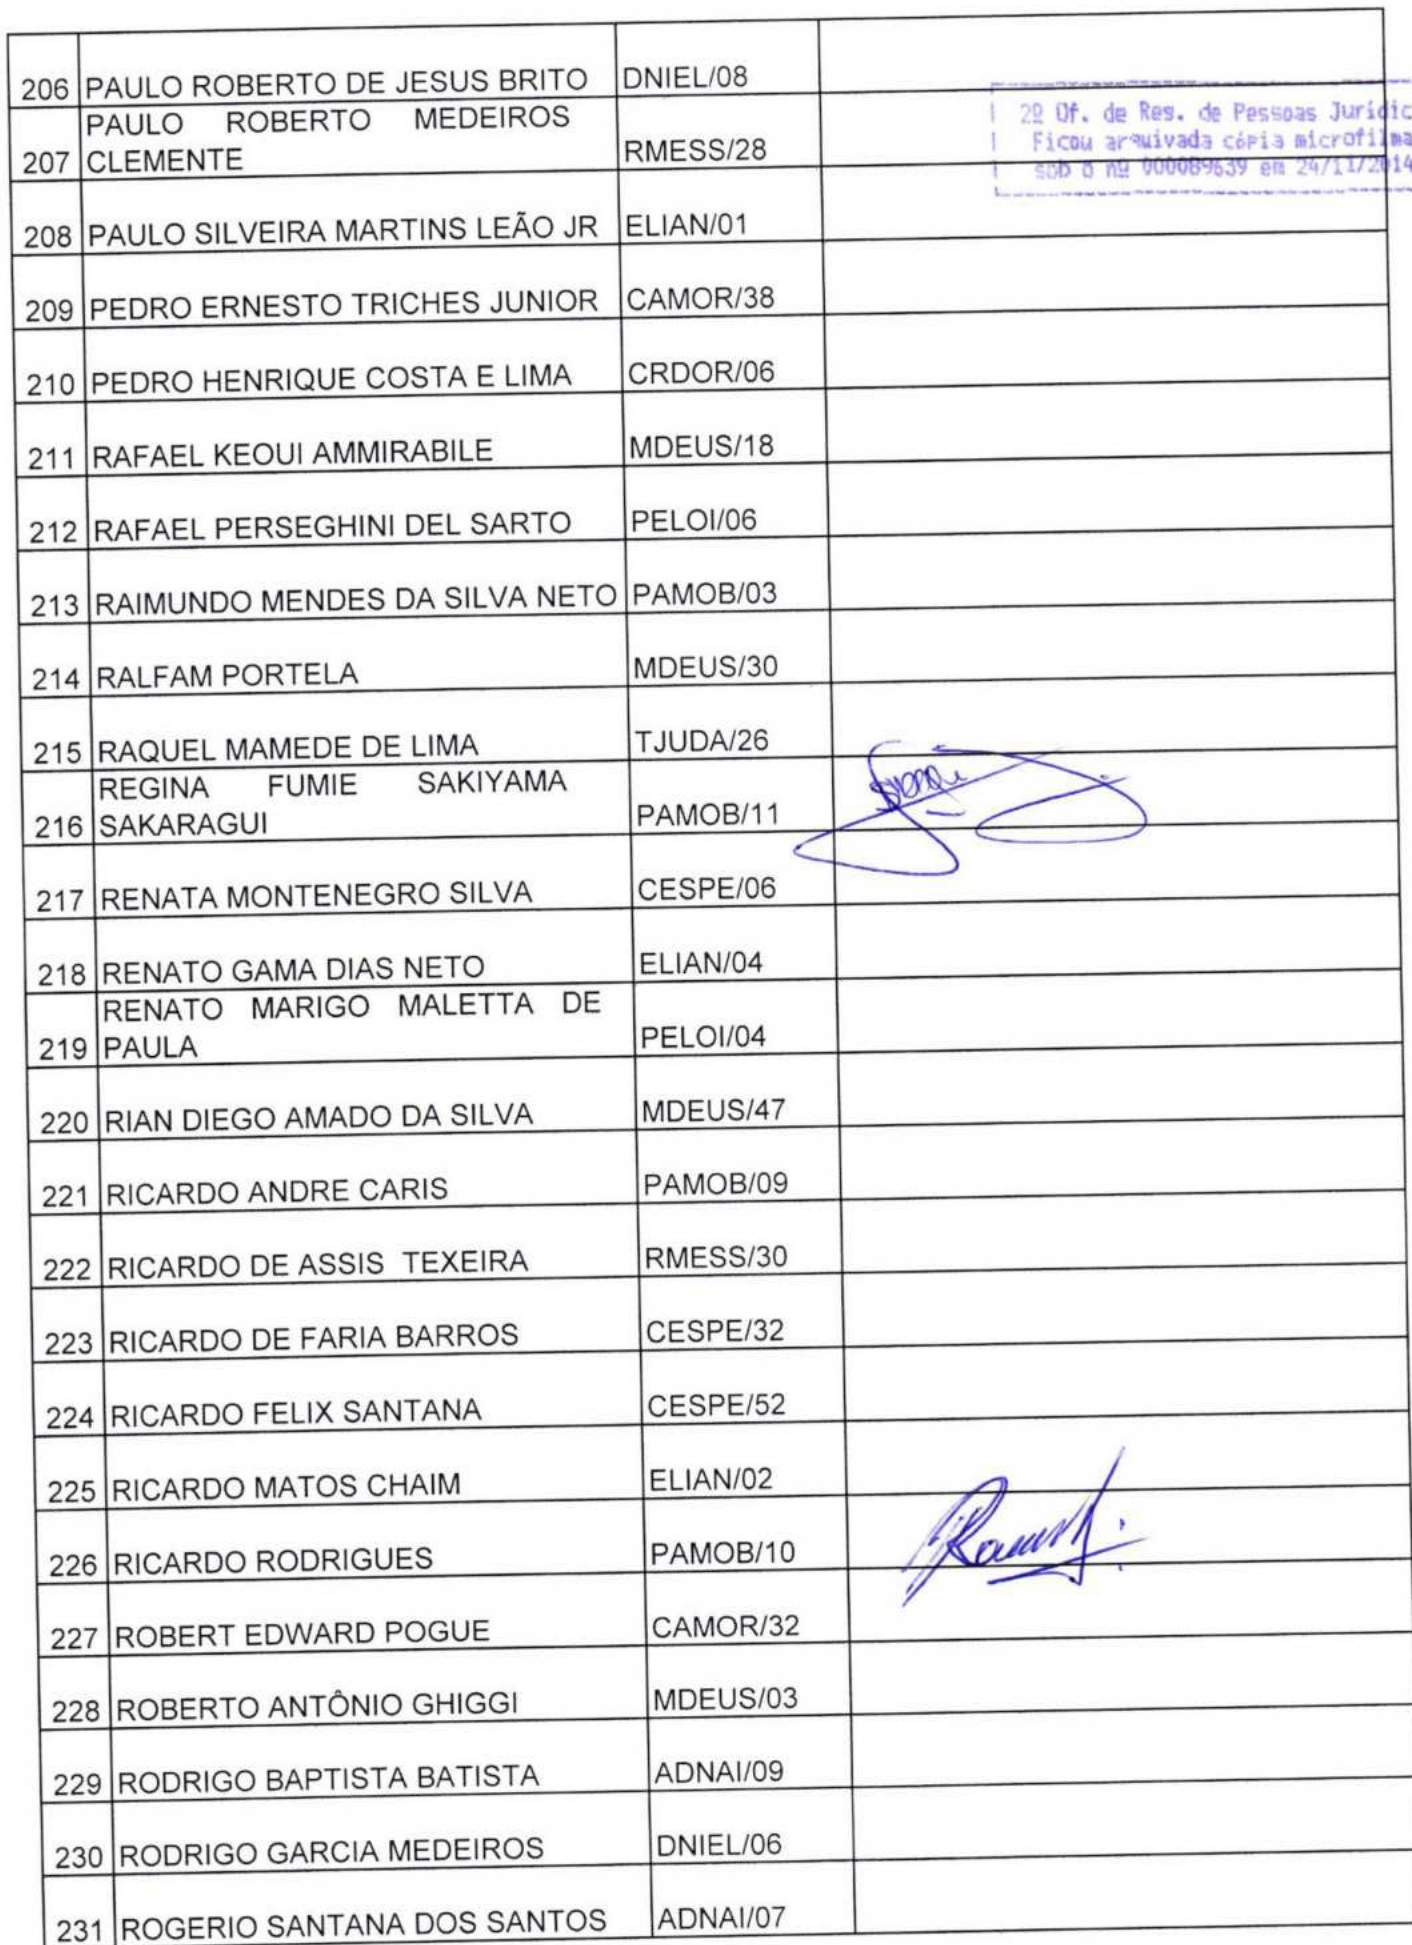 206 PAULO ROBERTO DE JESUS BRITO DNIEL/08
2º Of. de Res. de Pessoas Juridic
Ficou arquivada cópia microfilma
sob o nº 000089639 em 24/11/2014
PAULO ROBERTO MEDEIROS
207 CLEMENTE RMESS/28
208 PAULO SILVEIRA MARTINS LEÃO JR ELIAN/01
209 PEDRO ERNESTO TRICHES JUNIOR CAMOR/38
210 PEDRO HENRIQUE COSTA E LIMA CRDOR/06
211 RAFAEL KEOUI AMMIRABILE MDEUS/18
212 RAFAEL PERSEGHINI DEL SARTO PELOI/06
213 RAIMUNDO MENDES DA SILVA NETO PAMOB/03
214 RALFAM PORTELA MDEUS/30
215 RAQUEL MAMEDE DE LIMA TJUDA/26
REGINA FUMIE SAKIYAMA
216 SAKARAGUI PAMOB/11
217 RENATA MONTENEGRO SILVA CESPE/06
218 RENATO GAMA DIAS NETO ELIAN/04
RENATO MARIGO MALETTA DE
219 PAULA PELOI/04
220 RIAN DIEGO AMADO DA SILVA MDEUS/47
221 RICARDO ANDRE CARIS PAMOB/09
222 RICARDO DE ASSIS TEXEIRA RMESS/30
223 RICARDO DE FARIA BARROS CESPE/32
224 RICARDO FELIX SANTANA CESPE/52
225 RICARDO MATOS CHAIM ELIAN/02
226 RICARDO RODRIGUES PAMOB/10
227 ROBERT EDWARD POGUE CAMOR/32
228 ROBERTO ANTÔNIO GHIGGI MDEUS/03
229 RODRIGO BAPTISTA BATISTA ADNAI/09
230 RODRIGO GARCIA MEDEIROS DNIEL/06
231 ROGERIO SANTANA DOS SANTOS ADNAI/07